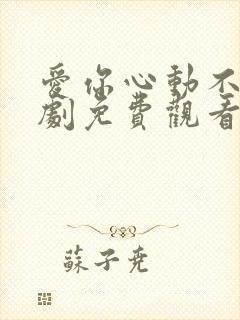 愛你心動不
劇免費觀看
蘇子堯